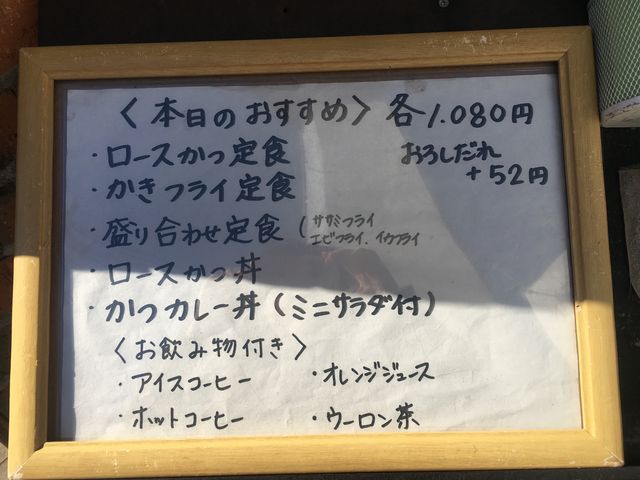 〈本日のおすすめ〉 各1.080円
・ロースかつ定食 おろしだれ
・かきフライ定食 +52円
・盛り合わせ定食 (ササミフライ
エビフライ.イカフライ
・ロースかつ丼
・かつカレー丼(ミニサラダ付)
〈お飲み物付き〉
・アイスコーヒー ・オレンジジュース
・ホットコーヒー ・ウーロン茶